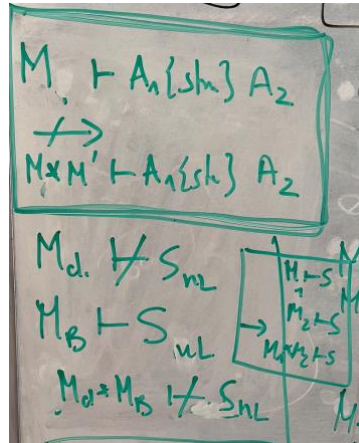 M ⊢ A₁{stm} A₂
↛
M*M' ⊢ A₁{stm} A₂
M_d ⊬ S_nL
M_B ⊢ S_nL
M_d*M_B ⊬ S_nL
M₁ ⊢ S
M₂ ⊢ S
→ M₁*M₂ ⊢ S